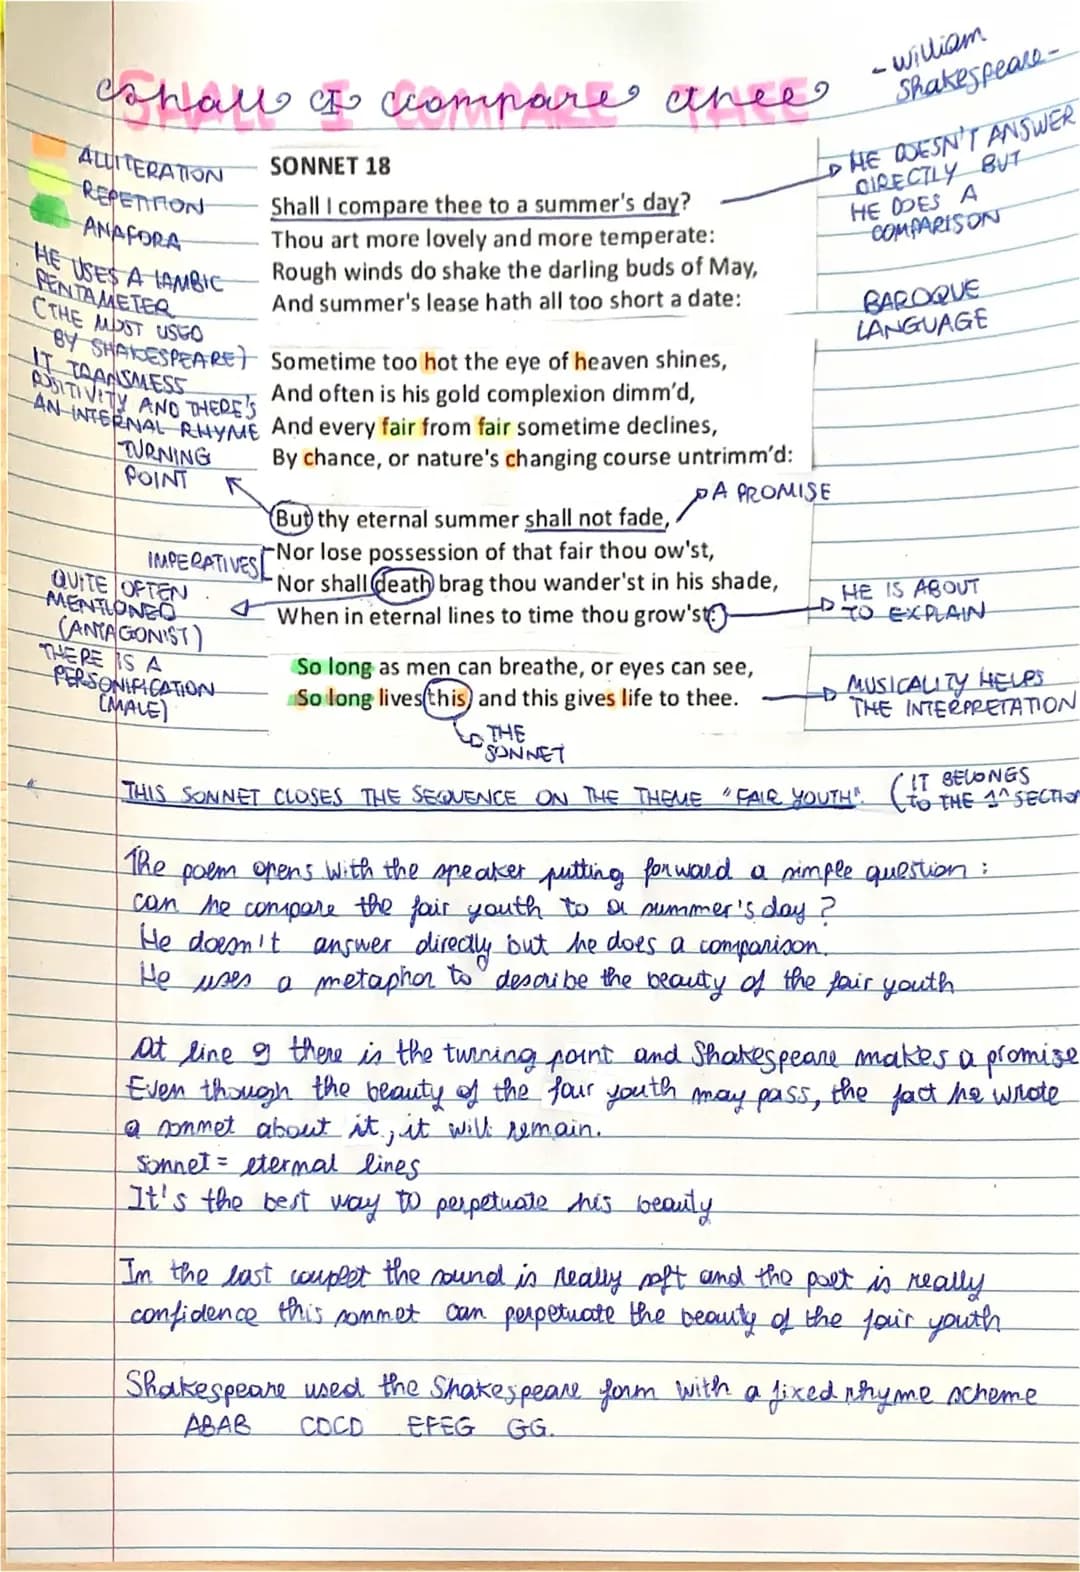 Shall I compare thee
- William
Shakespeare -
ALLITERATION
REPETITION
ANAFORA
HE USES A IAMBIC
PENTAMETER
(THE MOST USED
BY SHAKESPEARE)
IT TRANSMESS
POSITIVITY AND THERE'S
AN INTERNAL RHYME
TURNING
POINT
IMPERATIVES
QUITE OFTEN
MENTIONED
(ANTAGONIST)
THERE IS A
PERSONIFICATION
(MALE)
SONNET 18
Shall I compare thee to a summer's day?
Thou art more lovely and more temperate:
Rough winds do shake the darling buds of May,
And summer's lease hath all too short a date:
Sometime too hot the eye of heaven shines,
And often is his gold complexion dimm'd,
And every fair from fair sometime declines,
By chance, or nature's changing course untrimm'd:
But thy eternal summer shall not fade,
Nor lose possession of that fair thou ow'st,
Nor shall death brag thou wander'st in his shade,
When in eternal lines to time thou grow'st:
So long as men can breathe, or eyes can see,
So long lives this, and this gives life to thee.
THE
SONNET
HE DOESN'T ANSWER
DIRECTLY BUT
HE DOES A
COMPARISON
BAROQUE
LANGUAGE
A PROMISE
HE IS ABOUT
TO EXPLAIN
MUSICALITY HELPS
THE INTERPRETATION
THIS SONNET CLOSES THE SEQUENCE ON THE THEME "FAIR YOUTH".
(IT BELONGS
TO THE 1^ SECTION
The poem opens with the speaker putting forward a simple question:
can he compare the fair youth to a summer's day?
He doesn't answer directly but he does a comparison.
He uses a metaphor to describe the beauty of the fair youth
At line 9 there is the turning point and Shakespeare makes a promise
Even though the beauty of the fair youth may pass, the fact he wrote
a sonnet about it, it will remain.
Sonnet = eternal lines
It's the best way to perpetuate his beauty
In the last couplet the sound is really soft and the poet is really
confidence this sonnet can perpetuate the beauty of the fair youth
Shakespeare used the Shakespeare form with a fixed rhyme scheme
ABAB CDCD EFEG GG.